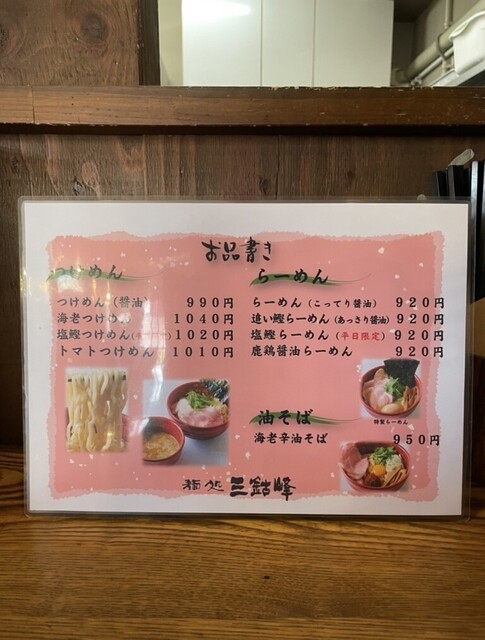 お品書き
つけめん
つけめん（醤油） 990円
海老つけめん 1040円
塩鰹つけめん 1020円
トマトつけめん 1010円
らーめん
らーめん（こってり醤油） 920円
追い鰹らーめん（あっさり醤油） 920円
塩鰹らーめん（平日限定） 920円
鹿鶏醤油らーめん 920円
特製らーめん
油そば
海老辛油そば 950円
麺処 三鈷峰